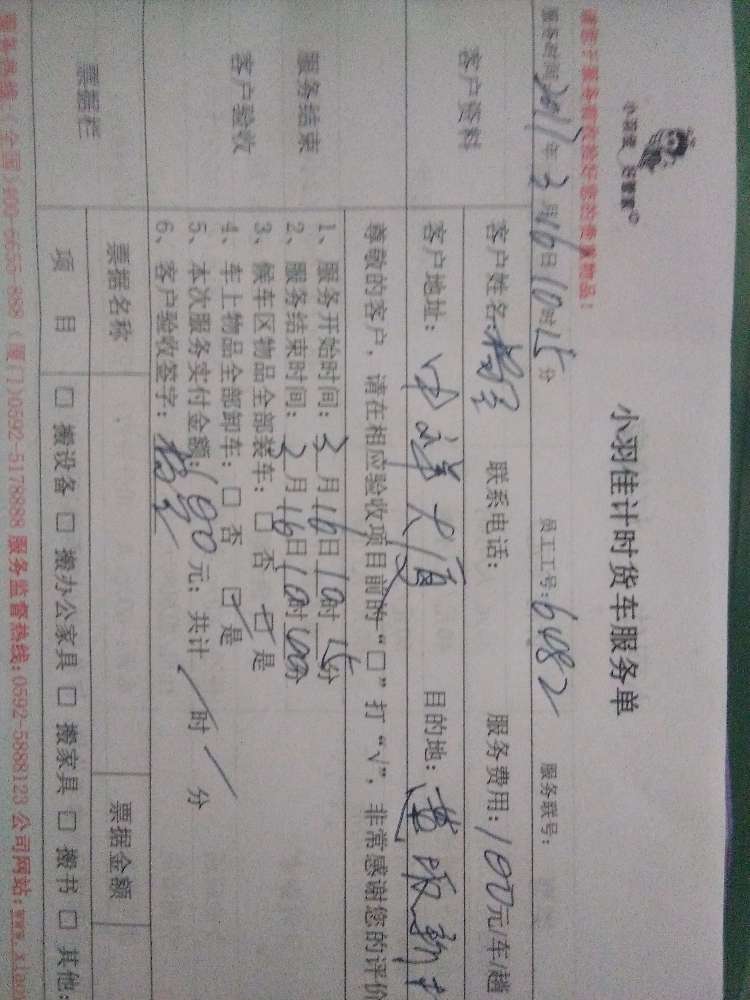 小羽佳 好管家
小羽佳计时货车服务单
请您于服务前收拾好您的贵重物品！
服务时间：2017年3月16日10时15分 员工工号：6482 服务联号：
客户资料
客户姓名： 联系电话： 服务费用：100元/车/趟
客户地址： 大厦 目的地：
尊敬的客户，请在相应验收项目前的“□”打“√”，非常感谢您的评价
服务结束
客户验收
1、服务开始时间：3月16日10时15分
2、服务结束时间：2月16日10时00分
3、候车区物品全部装车：□ 否 ☑ 是
4、车上物品全部卸车：□ 否 ☑ 是
5、本次服务实付金额：100元；共计 / 时 / 分
6、客户验收签字：
票据栏
票据名称 票据金额
项 目 □ 搬设备 □ 搬办公家具 □ 搬家具 □ 搬书 □ 其他：
服务热线：(全国)400-6655-888 (厦门)0592-5178888 服务监督热线：0592-5888123 公司网站：www.xiao